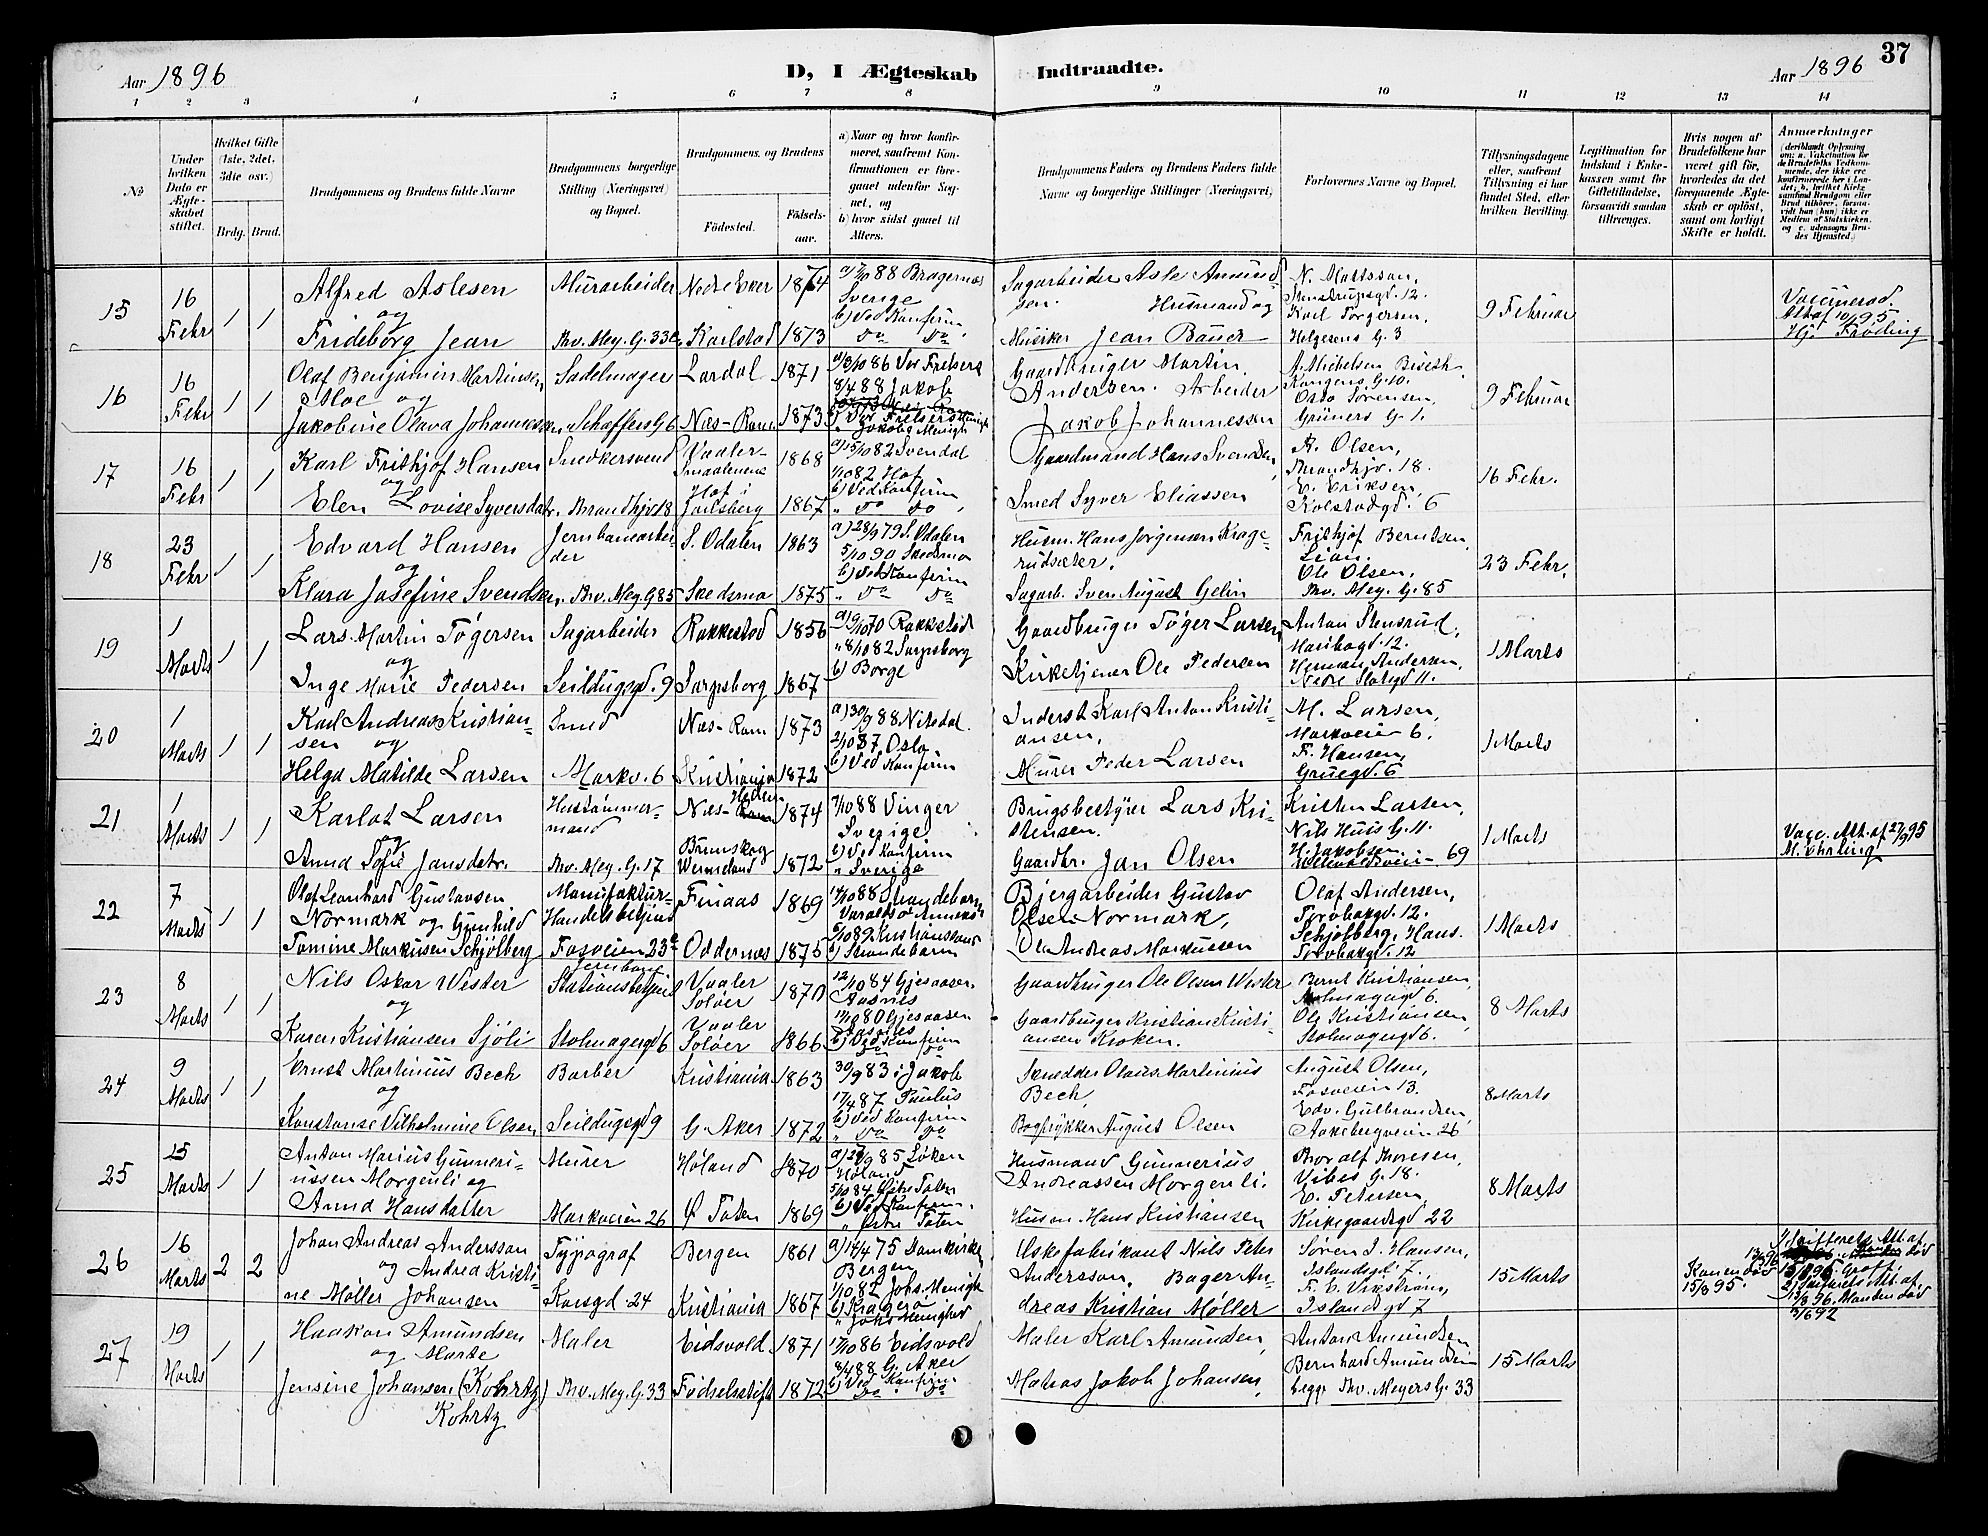 37
Aar 1896
D, I Ægteskab Indtraadte.
Aar 1896
1 2 3 4 5 6 7 8 9 10 11 12 13 14
No
Under hvilken Dato er Ægteskabet stiftet.
Hvilket Gifte (1ste, 2det, 3die osv.)
Brdg. Brud.
Brudgommens og Brudens fulde Navne
Brudgommens borgerlige Stilling (Næringsvei) og Bopæl.
Brudgommens og Brudens
Fødested.
Fødselsaar.
a) Naar og hvor konfirmeret, saafremt Konfirmationen er foregaaet udenfor Sognet, og
b) hvor sidst gaaet til Alters.
Brudgommens Faders og Brudens Faders fulde Navne og borgerlige Stillinger (Næringsvei)
Forlovernes Navne og Bopæl.
Tillysningsdagene eller, saafremt Tillysning ei har fundet Sted, efter hvilken Bevilling.
Legitimation for Indskud i Enkekassen samt for Giftetilladelse, forsaavidt saadan tiltrænges.
Hvis nogen af Brudefolkene har været gift før, hvorledes da det foregaaende Ægteskab er opløst, samt om lovligt Skifte er holdt.
Anmærkninger
15 16 Febr 1 1
Alfred Aslesen
og
Frideborg Jean
Murarbeider
Thv. Mey. G. 33
Nedre Eker 1864
Karlstad 1873
88 Bragernæs
Sverige
b) Ved Konfirm
do do
Sagarbeider Asle Amundsen. Husmand og
Musiker Jean Bauer
N. Mattsson,
Stenstrupsgd. 12.
Karl Torgersen,
Helgesens G. 3
9 Februar
Vaccinerad.
Attst 95
Hj. Fröding
16 16 Febr 1 1
Olaf Benjamin Martinsen
Moe og
Jakobine Olava Johannessen
Sadelmager
Schaffers G 6
Lardal 1871
Næs-Rom. 1873
a) 3/10 86 Vor Frelsers
8/4 88 Jakob
Gaardbruger Martin
Andersen. Arbeider
Jakob Johannessen
A. Michelsen
Kongens G. 10.
Osto Sørensen,
Grüners G 1.
9 Februar
17 16 Febr 1 1
Karl Frithjof Hansen
og
Elen Lovise Syversdatr.
Snedkersvend
Brandhjv 18
Vaaler-
Smaalenene 1868
Hof i
Jarlsberg 1867
a) 15/10 82 Svendal
1/10 82 Hof
b) Ved Konfirm
" do do
Gaardmand Hans Svendsen,
Smed Syver Eliassen
A. Olsen,
Brandhjv. 18.
E. Eriksen,
Kolstadgd. 6
16 Febr.
18 23 Febr 1 1
Edvard Hansen
og
Klara Josefine Svendsen
Jernbanearbeider
Thv. Mey. G 85
S. Odalen 1863
Skedsmo 1875
a) 28/9 79 S. Odalen
5/10 90 Skedsmo
b) Ved Konfirm
" do do
Husm. Hans Jørgensen Kragerudsæter.
Sagarb. Sven August Gelin
Frithjof Berntsen,
Lian.
Ole Olsen,
Thv. Mey. G. 85
23 Febr.
19 1 Marts 1 1
Lars Martin Tøgersen
og
Inge Marie Pedersen
Sagarbeider
Seildugsgd. 9
Rakkestad 1856
Sarpsborg 1867
a) 9/10 70 Rakkestad
" 8/10 82 Sarpsborg
b) Borge
Gaardbruger Tøger Larsen
Kirketjener Ole Pedersen
Anton Stensrud,
Maribogd. 12.
Herman Andersen,
Nedre Slotsgd 11.
1 Marts
20 1 Marts 1 1
Karl Andreas Kristiansen og
Helga Matilde Larsen
Smed
Markv. 6
Næs-Rom 1873
Kristiania 1872
a) 30/9 88 Nitedal
2/10 87 Oslo
b) Ved Konfirm
Inderst Karl Anton Kristiansen,
Murer Peder Larsen
M. Larsen,
Markveien 6.
F. Hansen,
Gruegd. 6
1 Marts
21 1 Marts 1 1
Karlot Larsen
og
Anna Sofie Jansdatr.
Hustømmermand
Thv. Mey. G. 17
Næs-Hedem 1874
Brunskog
Wermeland 1872
88 Vinger
Sverige
b) Ved Konfirm
" Sverige
Brugsbestyrer Lars Kristensen.
Gaardbr. Jan Olsen
Kristen Larsen,
Nils Huis G. 11.
H. Jakobsen,
69
1 Marts
Vacc. Att. af 27/9 95
22 7 Marts 1 1
Olaf Leonhard Gustavsen
Normark og Gunhild
Tomine Markusen Schjølberg
Manufaktur-
Handelsbetjent
Fosveien 23
Finaas 1869
Oddernæs 1875
88 Strandebarm
Varaldsø Anneks
89 Kristianssand
b) Strandebarm
Bjergarbeider Gustav
Olsen Normark,
Ole Andreas Markussen
Olaf Andersen,
Torvbakgd. 12.
Schjølberg, Hans.
Torvbakgd. 12
1 Marts
23 8 Marts 1 1
Nils Oskar Wister
og
Karen Kristiansen Sjøli
Jernbane-
Stationsbetjent
Stolmagergd 6
Vaaler
Soløer 1870
Vaaler
Soløer 1866
12/10 84 Gjesaasen
Aasnes
80 Gjesaasen
Aasnes
b) Ved Konfirm
Gaardbruger Ole Olsen Wister
Gaardbruger Kristian Kristiansen Kroken.
Bernt Kristiansen,
Stolmagergd 6.
Ole Kristiansen,
Stolmagergd 6.
8 Marts
24 9 Marts 1 1
Ernst Martinius Bech
og
Konstanse Vilhelmine Olsen
Barber
Seildugsgd 9
Kristiania 1863
G. Aker 1872
30/9 83 i Jakob
17/4 87 Paulus
b) Ved Konfirm
" do do
Snedker Olaus Martinius
Bech,
Bogtrykker August Olsen
August Olsen,
Fosveien 13.
Edv. Gulbrandsen,
Aakebergveien 26
8 Marts
25 15 Marts 1 1
Anton Marius Gunneriussen Morgenli og
Anna Hansdatter
Murer
Markveien 26
Høland 1870
Ø Toten 1869
85 Løken
Høland
5/10 84 Østre Toten
b) Ved Konfirm.
" Østre Toten
Husmand Gunnerius
Andreassen Morgenli.
Husm. Hans Kristiansen
Thoralf Thoresen,
Vibes G. 18.
E. Petersen,
Kirkegaardsgd 22
8 Marts
26 16 Marts 2 2
Johan Andreas Andersson
og Andrea Kristine Møller Johansen
Typograf
Korsgd. 24
Bergen 1861
Kristiania 1867
a) 14/4 75 Domkirken
Bergen
1/10 82 Johs. Menigh
b) Kragerø
" Johs Menighed
Æskefabrikant Nils Peter
Andersson. Bager Andreas Kristian Møller
Søren J. Hansen,
Islandsgd 7.
F. E. Vikstrøm,
Islandsgd 7
15 Marts
Konen død
15/8 95.
Skifterets Att. af
Manden død
3/6 92
27 19 Marts 1 1
Haakon Amundsen
og Marte
Jensine Johansen (Kohrtz)
Kohrtz
Maler
Thv. Mey. G. 33
Eidsvold 1871
Fødselsstift 1872
86 Eidsvold
8/4 88 G. Aker
b) Ved Konfirm
do do
Maler Karl Amundsen,
Matros Jakob Johansen,
Anton Amundsen
Bernhard Amundsen
begge Thv. Meyers G. 33
15 Marts